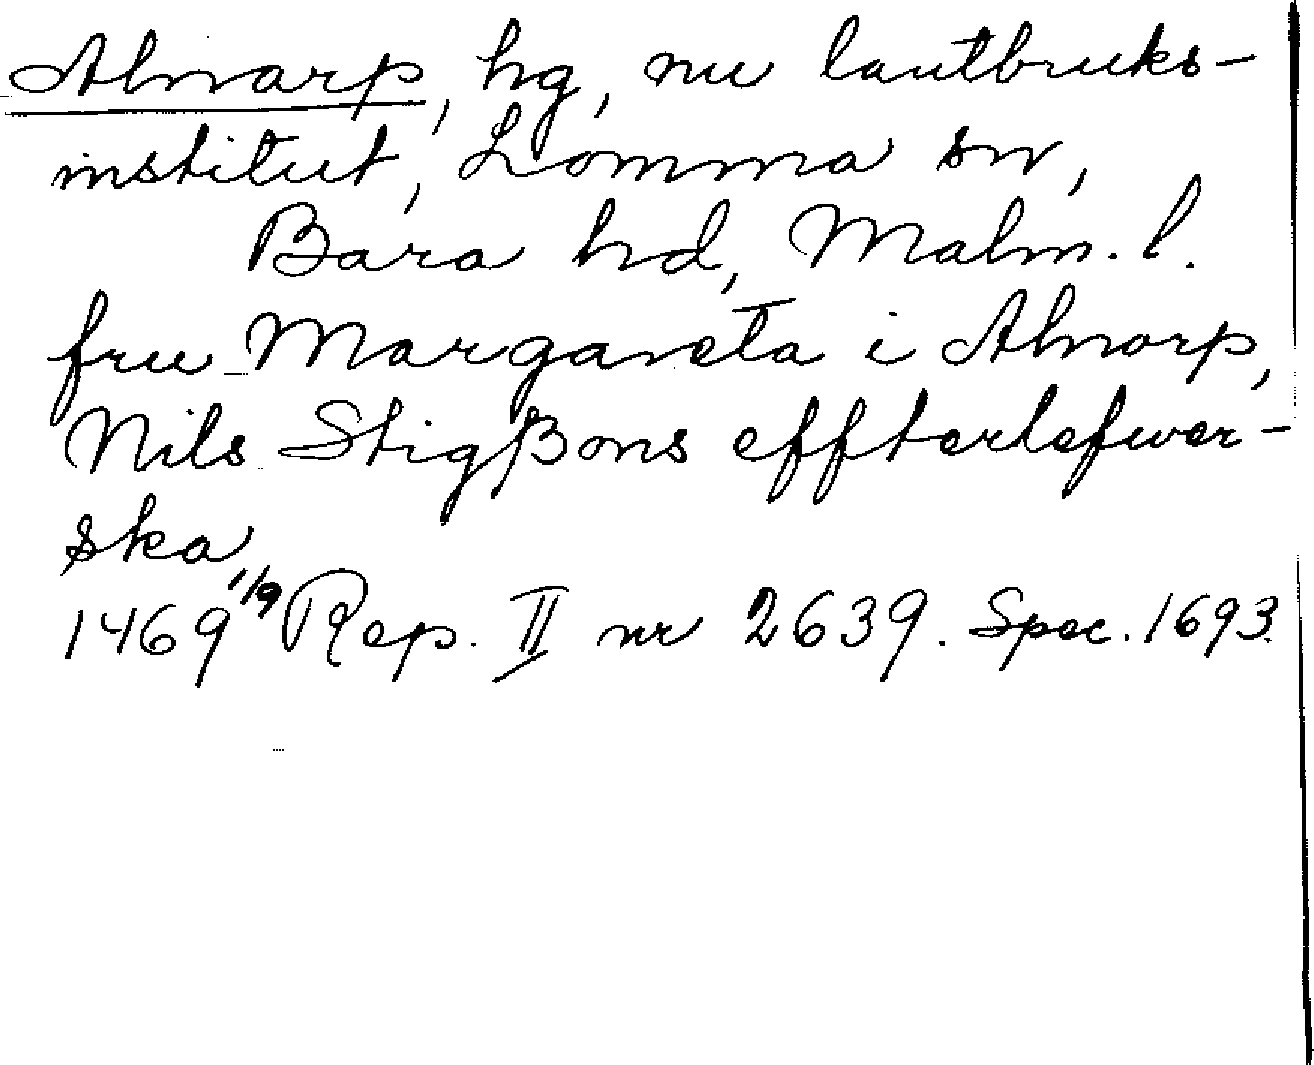 Alnarp, hg, nu lantbruks-
institut, Lomma sn,
Bara hd, Malm. l.
fru Margareta i Alnorp,
Nils Stigßons effterlefwer-
ska
1469 1/9 Rep. II nr 2639. Spec. 1693